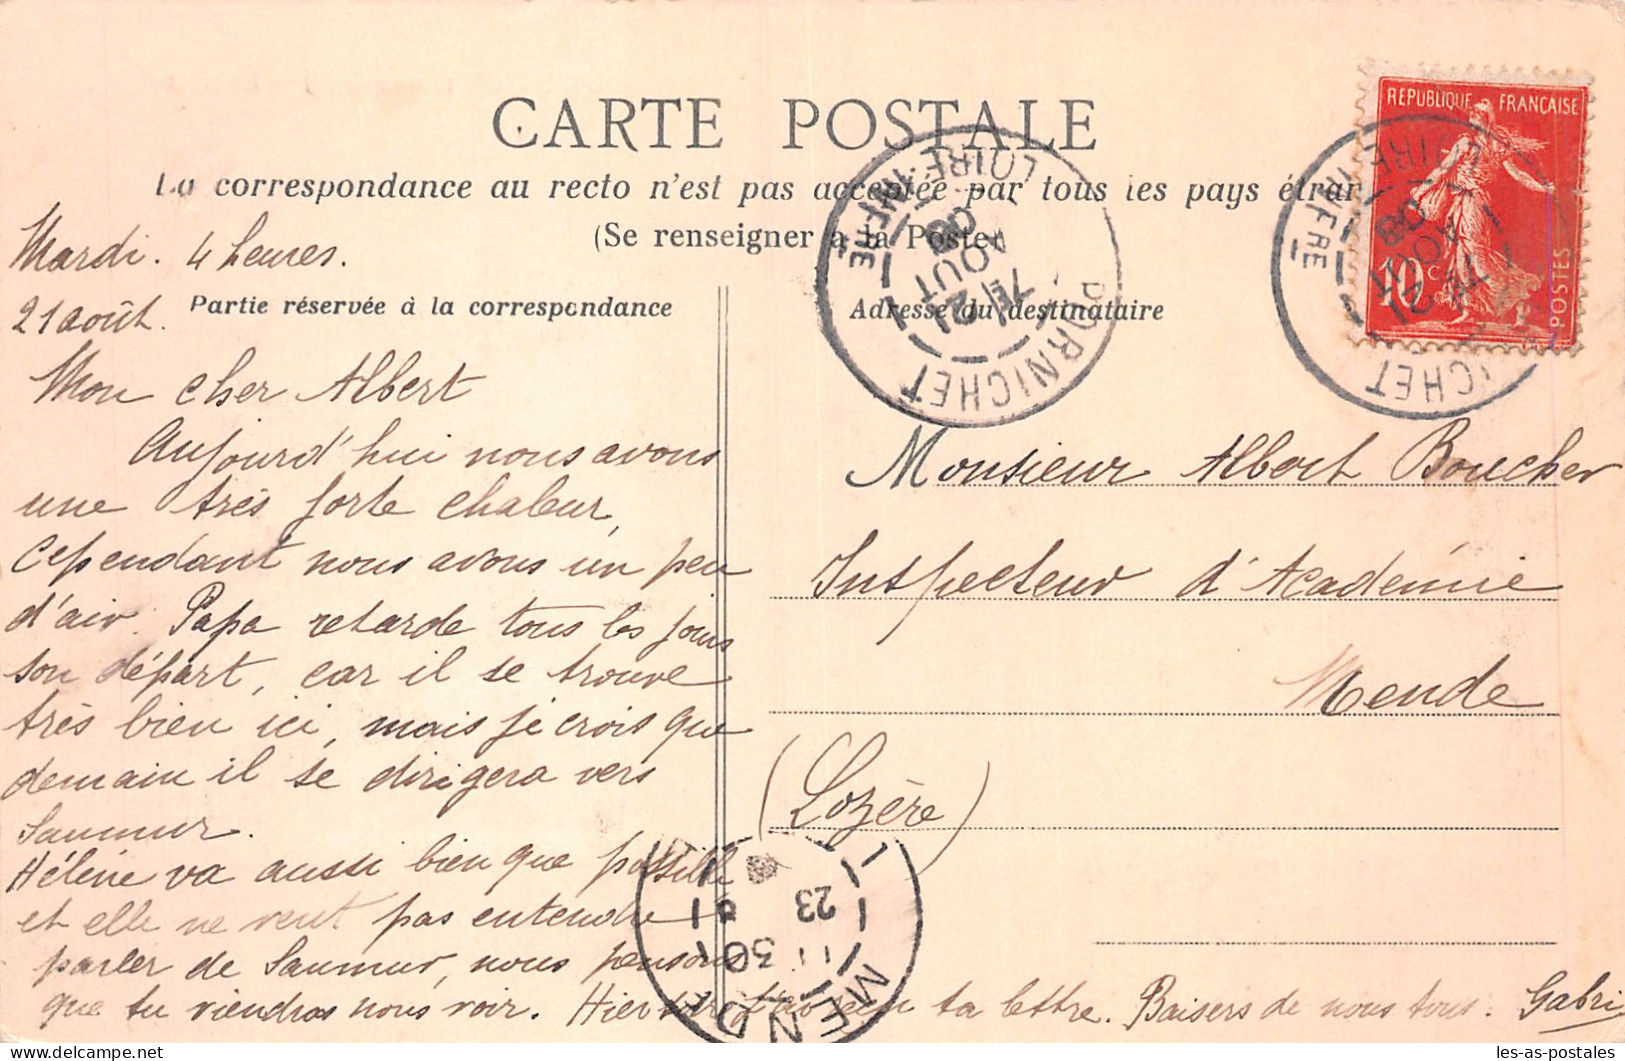 CARTE POSTALE
La correspondance au recto n'est pas acceptée par tous les pays étran
(Se renseigner à la Poste)
Partie réservée à la correspondance
Adresse du destinataire
Mardi. 4 heures.
21 août.
Mon cher Albert
Aujourd'hui nous avons
une très forte chaleur,
Cependant nous avons un peu
d'air. Papa retarde tous les jours
son départ, car il se trouve
très bien ici, mais je crois que
demain il se dirigera vers
Saumur.
Hélène va aussi bien que possible
et elle ne veut pas entendre
parler de Saumur, nous pensons
que tu viendras nous voir. Hier soir j'ai reçu ta lettre. Baisers de nous tous. Gabri
Monsieur Albert Boucher
Inspecteur d'Académie
Mende
(Lozère)
RÉPUBLIQUE FRANÇAISE
10 c
POSTES
PORNICHET
LOIRE-INFRE
7E
21
AOUT
08
PORNICHET
LOIRE-INFRE
7E
21
AOUT
08
MENDE
30
23
les-as-postales